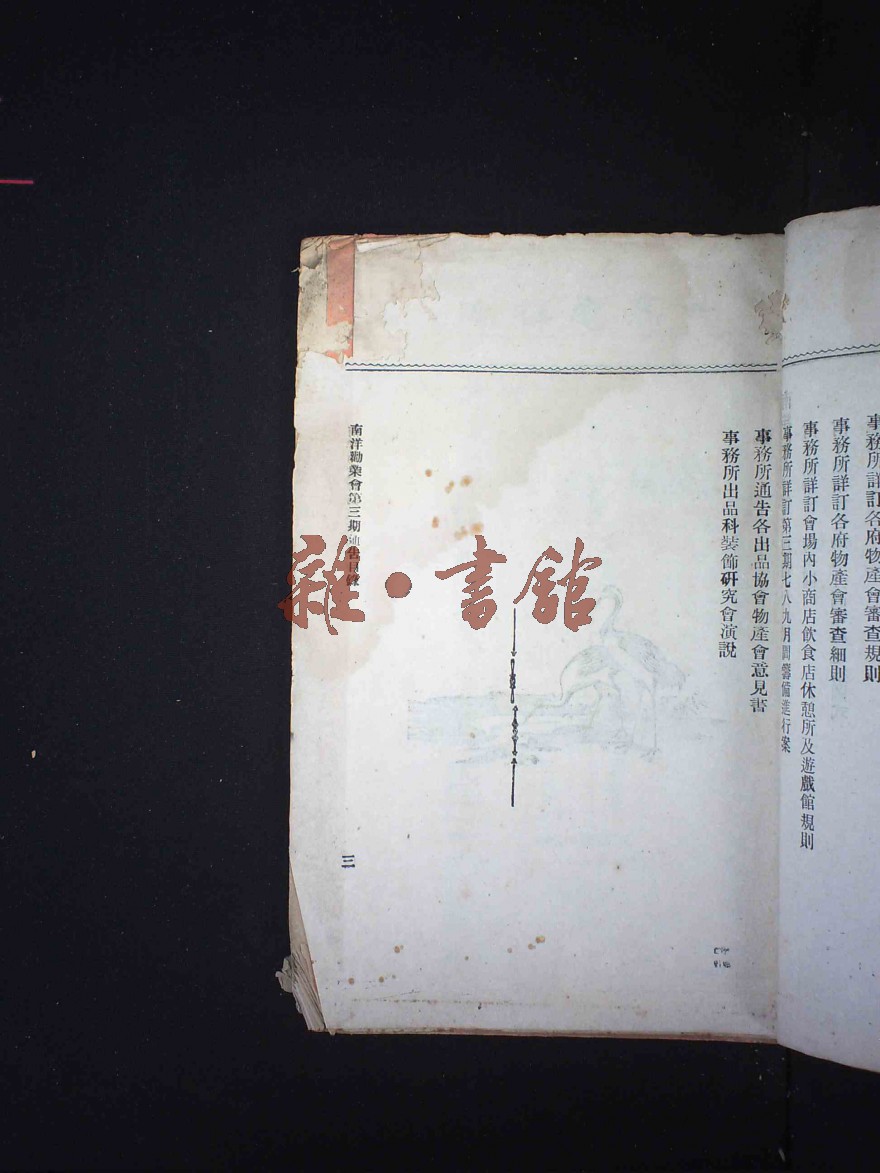 事務所詳訂各府物產會審查規則
事務所詳訂各府物產會審查細則
事務所詳訂會場內小商店飲食店休憩所及遊戲館規則
事務所詳訂第三期七八九月間籌備進行案
事務所通告各出品協會物產會意見書
事務所出品科裝飾研究會演說
南洋勸業會第三期通告目錄
三
雜·書館